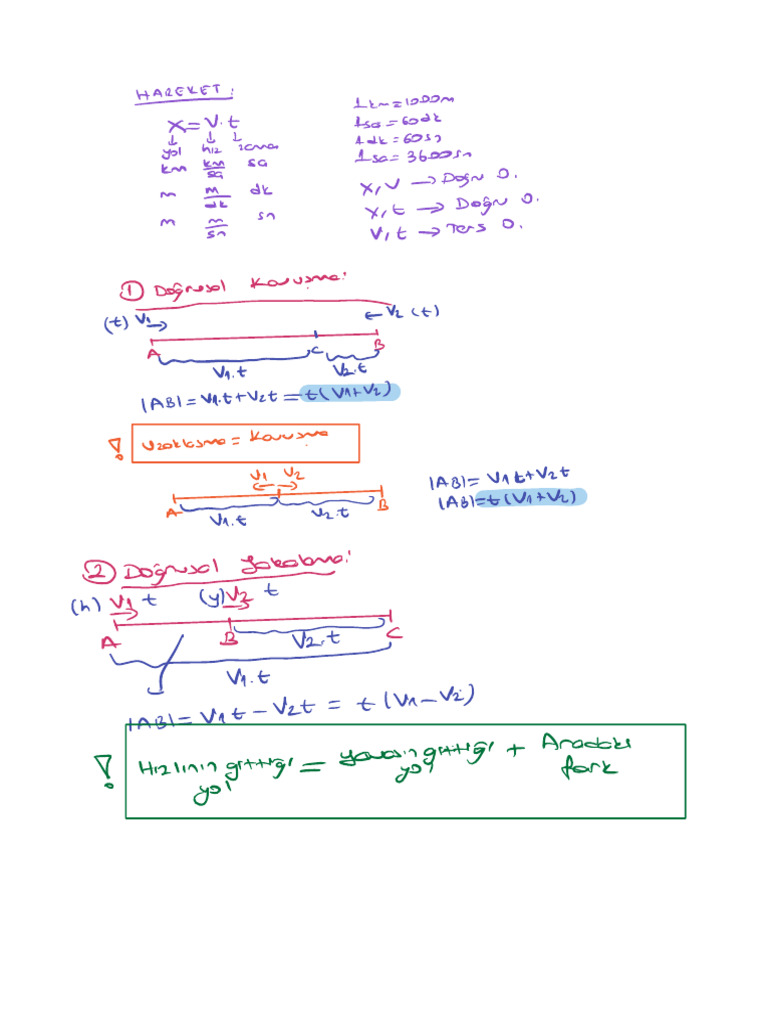 HAREKET:
X=V.t
yol hız zaman
km km/sa sa
m m/dk dk
m m/sn sn
1km=1000m
1sa=60dk
1dk=60sn
1sa=3600sn
X,V → Doğru O.
X,t → Doğru O.
V,t → Ters O.
① Doğrusal Kavuşma:
(t) V1 → ← V2 (t)
A C B
V1.t V2.t
|AB|=V1.t+V2t=t(V1+V2)
! Uzaklaşma = Kavuşma
V1 V2
← →
A B
V1.t V2.t
|AB|= V1t+V2t
|AB|=t(V1+V2)
② Doğrusal Yakalama:
(h) V1 t (y) V2 t
A B C
V2.t
V1.t
|AB|=V1t-V2t = t(V1-V2)
! Hızlının gittiği yol = Yavaşın gittiği yol + Aradaki fark